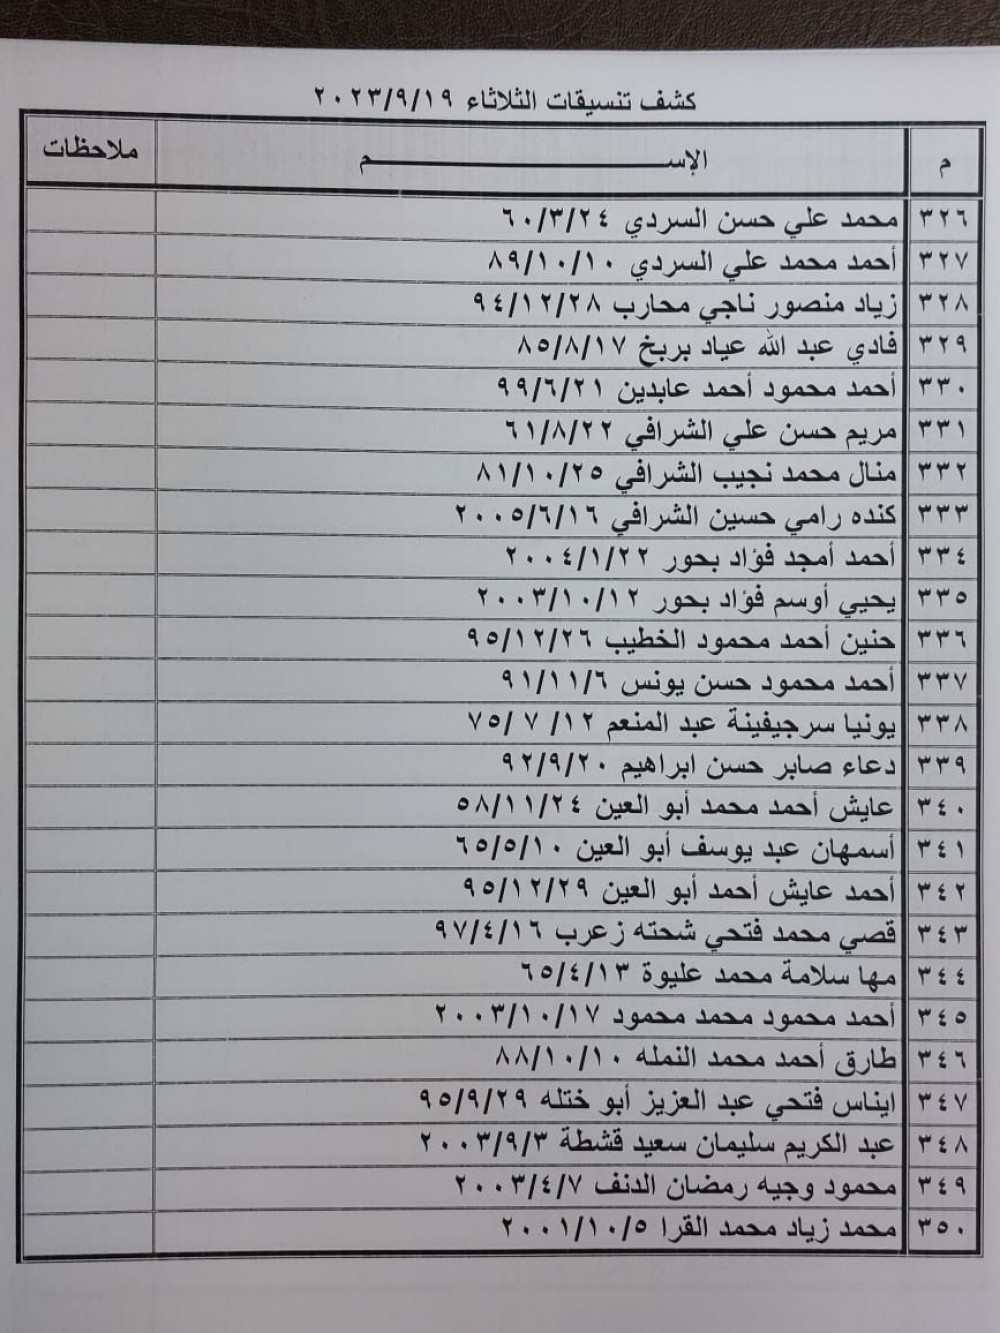 كشف تنسيقات الثلاثاء ٢٠٢٣/٩/١٩
م الإســـــم ملاحظات
٣٢٦ محمد علي حسن السردي ٦٠/٣/٢٤
٣٢٧ أحمد محمد علي السردي ٨٩/١٠/١٠
٣٢٨ زياد منصور ناجي محارب ٩٤/١٢/٢٨
٣٢٩ فادي عبد الله عياد بربخ ٨٥/٨/١٧
٣٣٠ أحمد محمود أحمد عابدين ٩٩/٦/٢١
٣٣١ مريم حسن علي الشرافي ٦١/٨/٢٢
٣٣٢ منال محمد نجيب الشرافي ٨١/١٠/٢٥
٣٣٣ كنده رامي حسين الشرافي ٢٠٠٥/٦/١٦
٣٣٤ أحمد أمجد فؤاد بحور ٢٠٠٤/١/٢٢
٣٣٥ يحيي أوسم فؤاد بحور ٢٠٠٣/١٠/١٢
٣٣٦ حنين أحمد محمود الخطيب ٩٥/١٢/٢٦
٣٣٧ أحمد محمود حسن يونس ٩١/١١/٦
٣٣٨ يونيا سرجيفينة عبد المنعم ٧٥/ ٧ /١٢
٣٣٩ دعاء صابر حسن ابراهيم ٩٢/٩/٢٠
٣٤٠ عايش أحمد محمد أبو العين ٥٨/١١/٢٤
٣٤١ أسمهان عبد يوسف أبو العين ٦٥/٥/١٠
٣٤٢ أحمد عايش أحمد أبو العين ٩٥/١٢/٢٩
٣٤٣ قصي محمد فتحي شحته زعرب ٩٧/٤/١٦
٣٤٤ مها سلامة محمد عليوة ٦٥/٤/١٣
٣٤٥ أحمد محمود محمد محمود ٢٠٠٣/١٠/١٧
٣٤٦ طارق أحمد محمد النمله ٨٨/١٠/١٠
٣٤٧ ايناس فتحي عبد العزيز أبو ختله ٩٥/٩/٢٩
٣٤٨ عبد الكريم سليمان سعيد قشطة ٢٠٠٣/٩/٣
٣٤٩ محمود وجيه رمضان الدنف ٢٠٠٣/٤/٧
٣٥٠ محمد زياد محمد القرا ٢٠٠١/١٠/٥